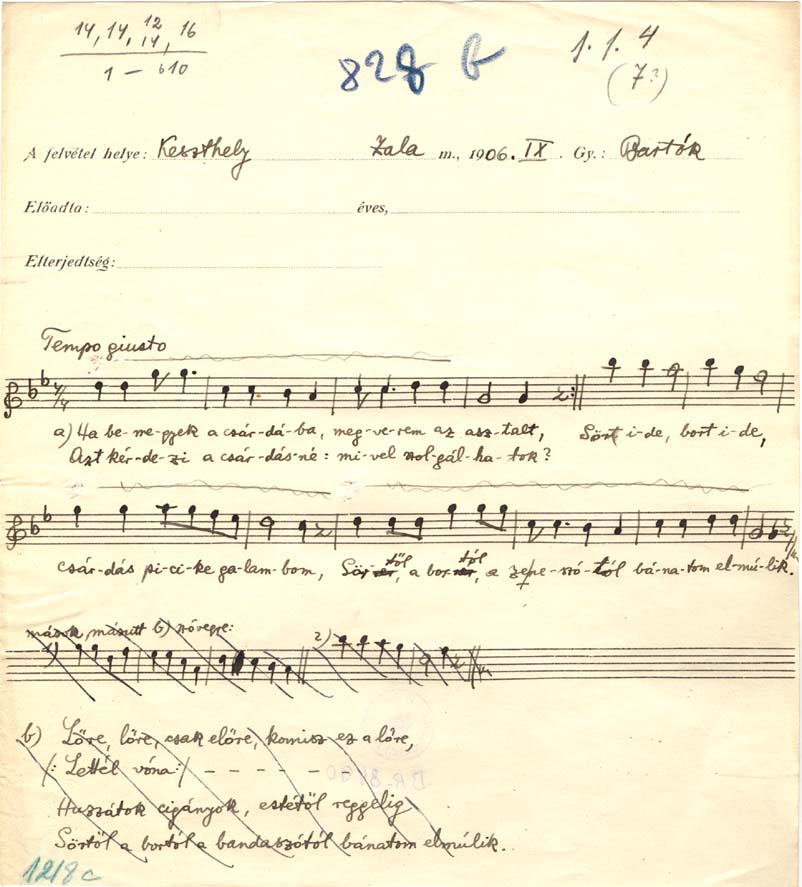 14, 14, 12/14, 16
1 – b10
828 b
1. 1. 4
(7?)
A felvétel helye: Keszthely Zala m., 1906. IX. Gy.: Bartók
Előadta: éves,
Elterjedtség:
Tempo giusto
a) Ha be-me-gyek a csár-dá-ba, meg-ve-rem az asz-talt, Sört i-de, bort i-de,
Azt kér-de-zi a csár-dás-né: mi-vel szol-gál-ha-tok?
csár-dás pi-ci-ke ga-lam-bom, Sör-től, a bor-tól, a ze-ne-szó-tól bá-na-tom el-mú-lik.
mások, másutt b) szövegre:
1) 2)
b) Lőre, lőre, csak előre, komisz ez a lőre,
/: Lettél vóna :/ – – – – –
Huzzátok cigányok, estétől reggelig
Sörtől a bortól a bandaszótól bánatom elmúlik.
1218c